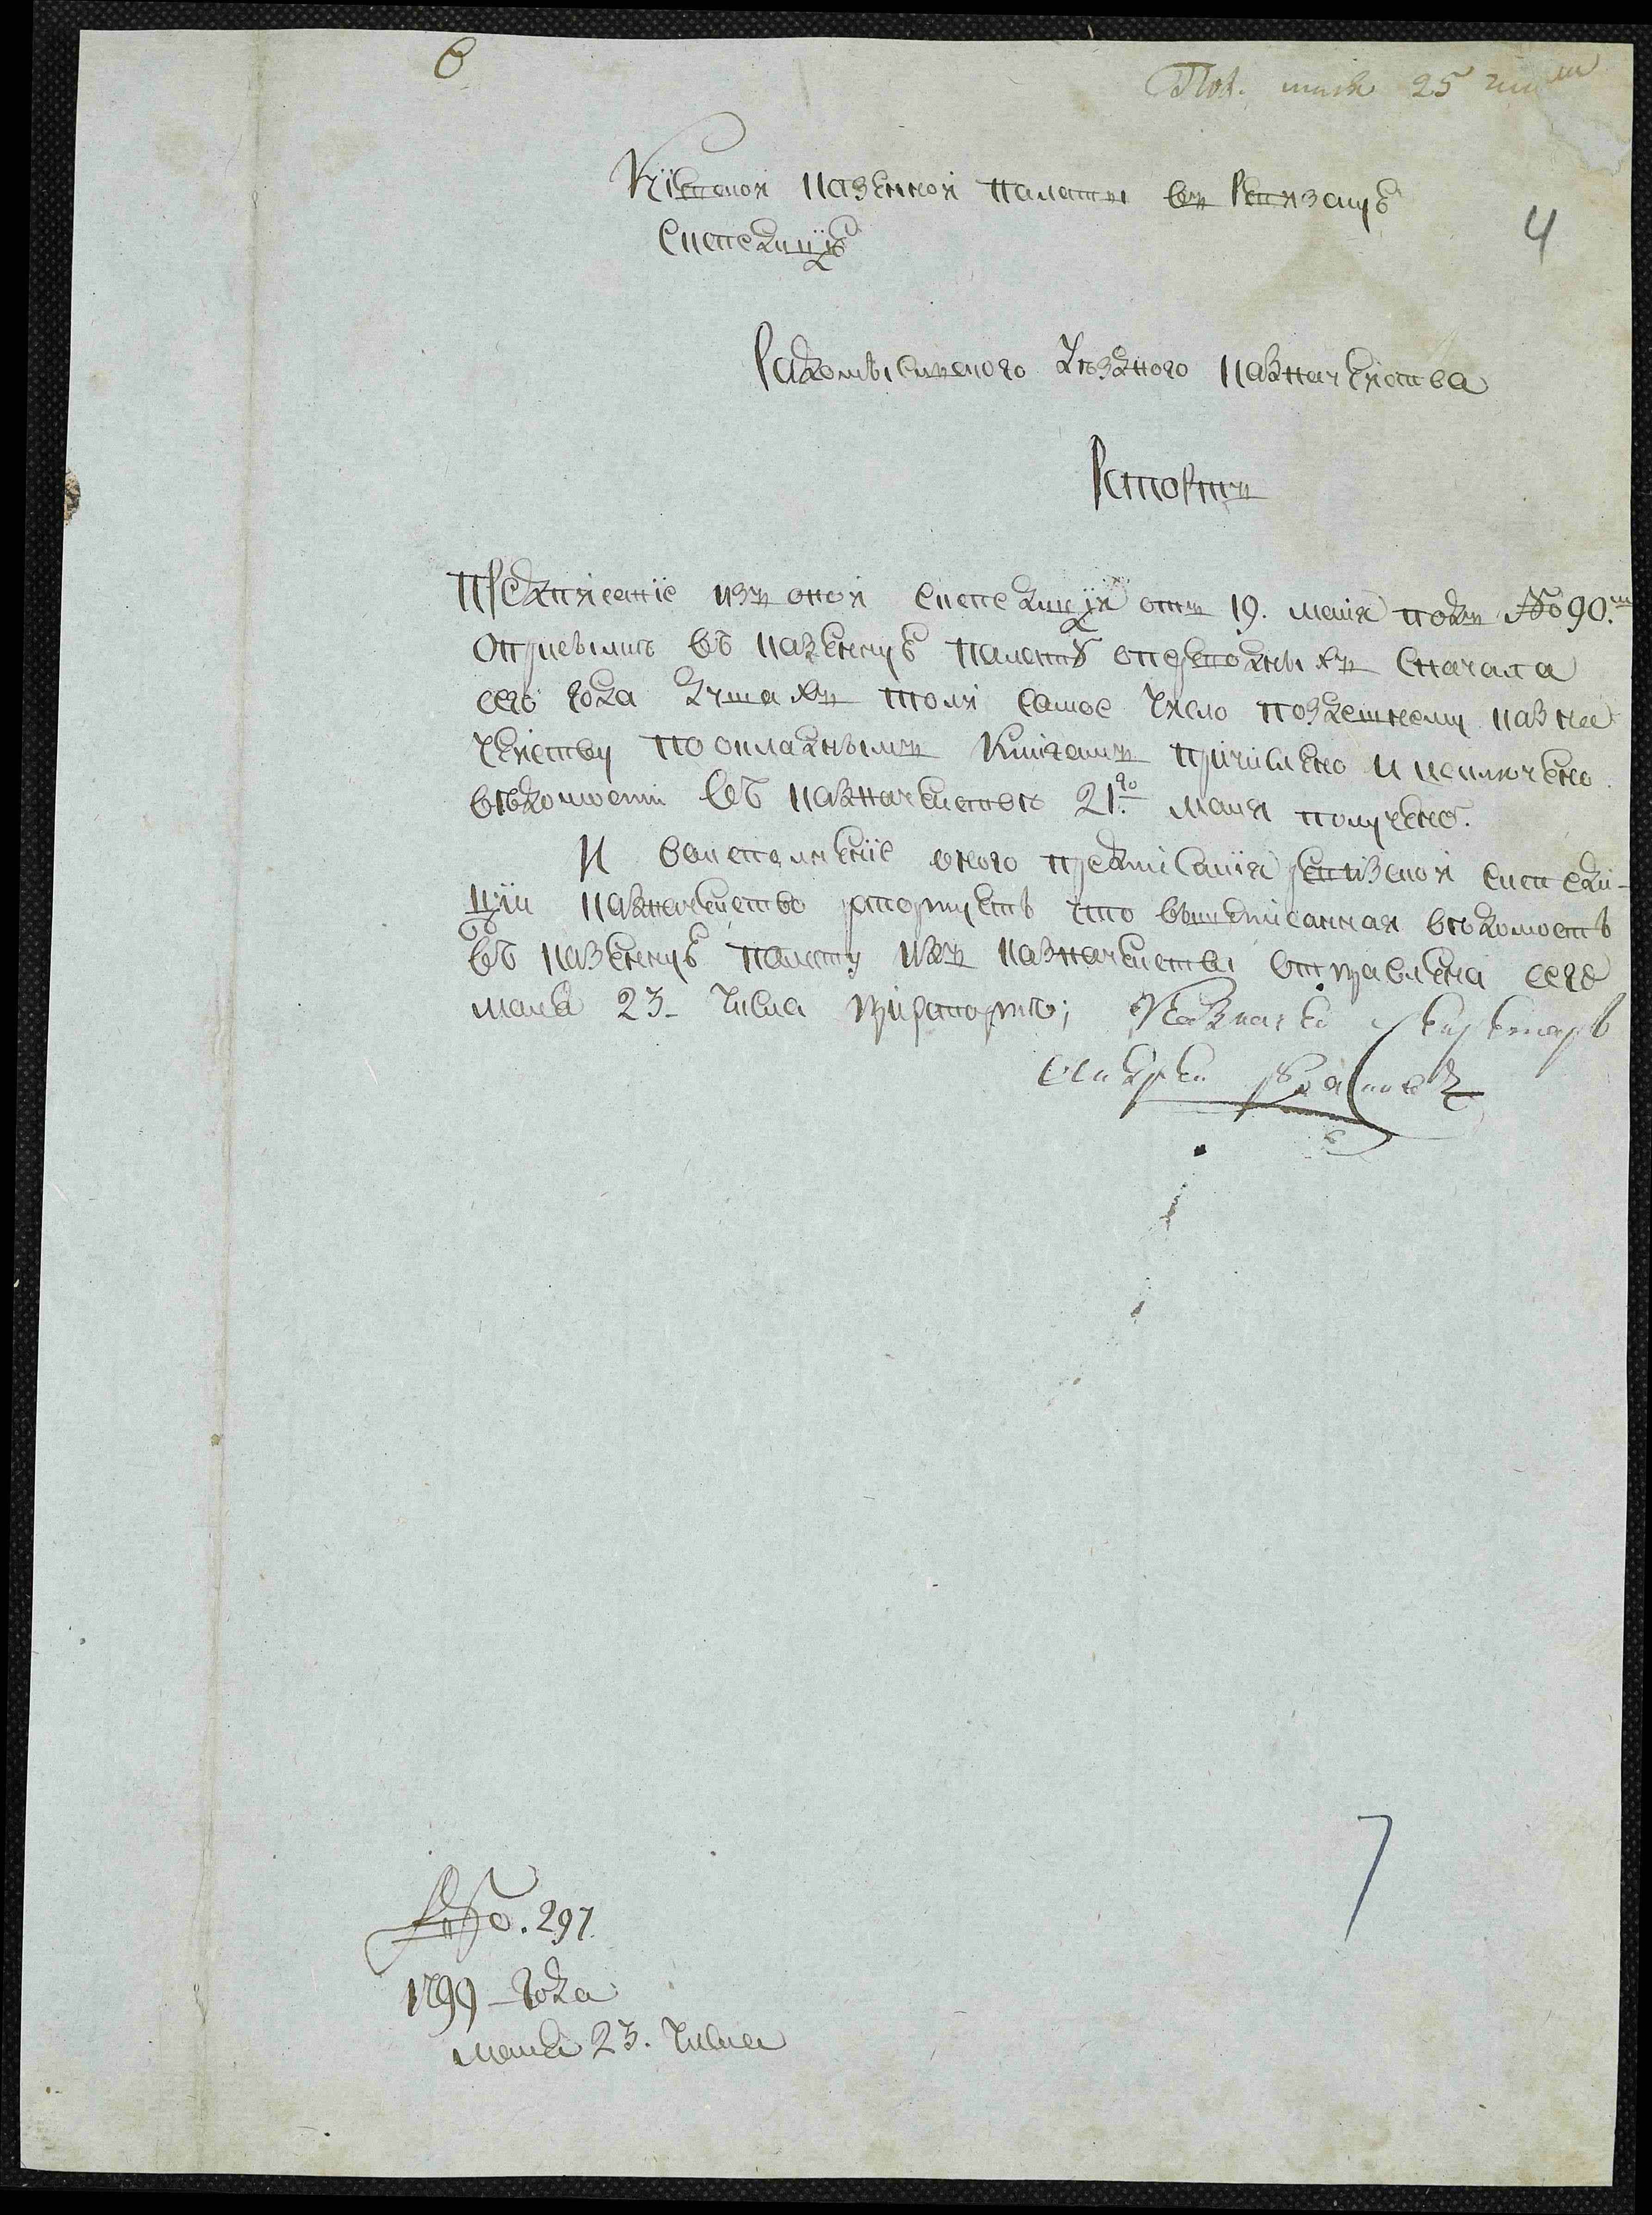 6
Пол. мая 25 числа
4
Кiевской казенной палаты въ Ревизскую
Експедицiю
Радомысльского уезднаго казначейства
Рапортъ
Предписанiе изъ оной експедицiи отъ 19. маiя подъ №о 90.мъ
отправлять въ казенную палату о переходныхъ сначала
сего года душахъ толи самое число поздешнему казна
чейству по окладнымъ книгамъ причислено и исключено
ведомости въ казначействе 21го маия получено.
И во исполненiе оного предписанiя ревизской експеди-
цiи казначейство рапортуетъ что вышеписанная ведомость
въ казенную палату изъ казначейства отправлена сего
маия 23- числа прирапорте; Казначей
Андрей
№о. 297.
1799 - года
маия 23. числа
7